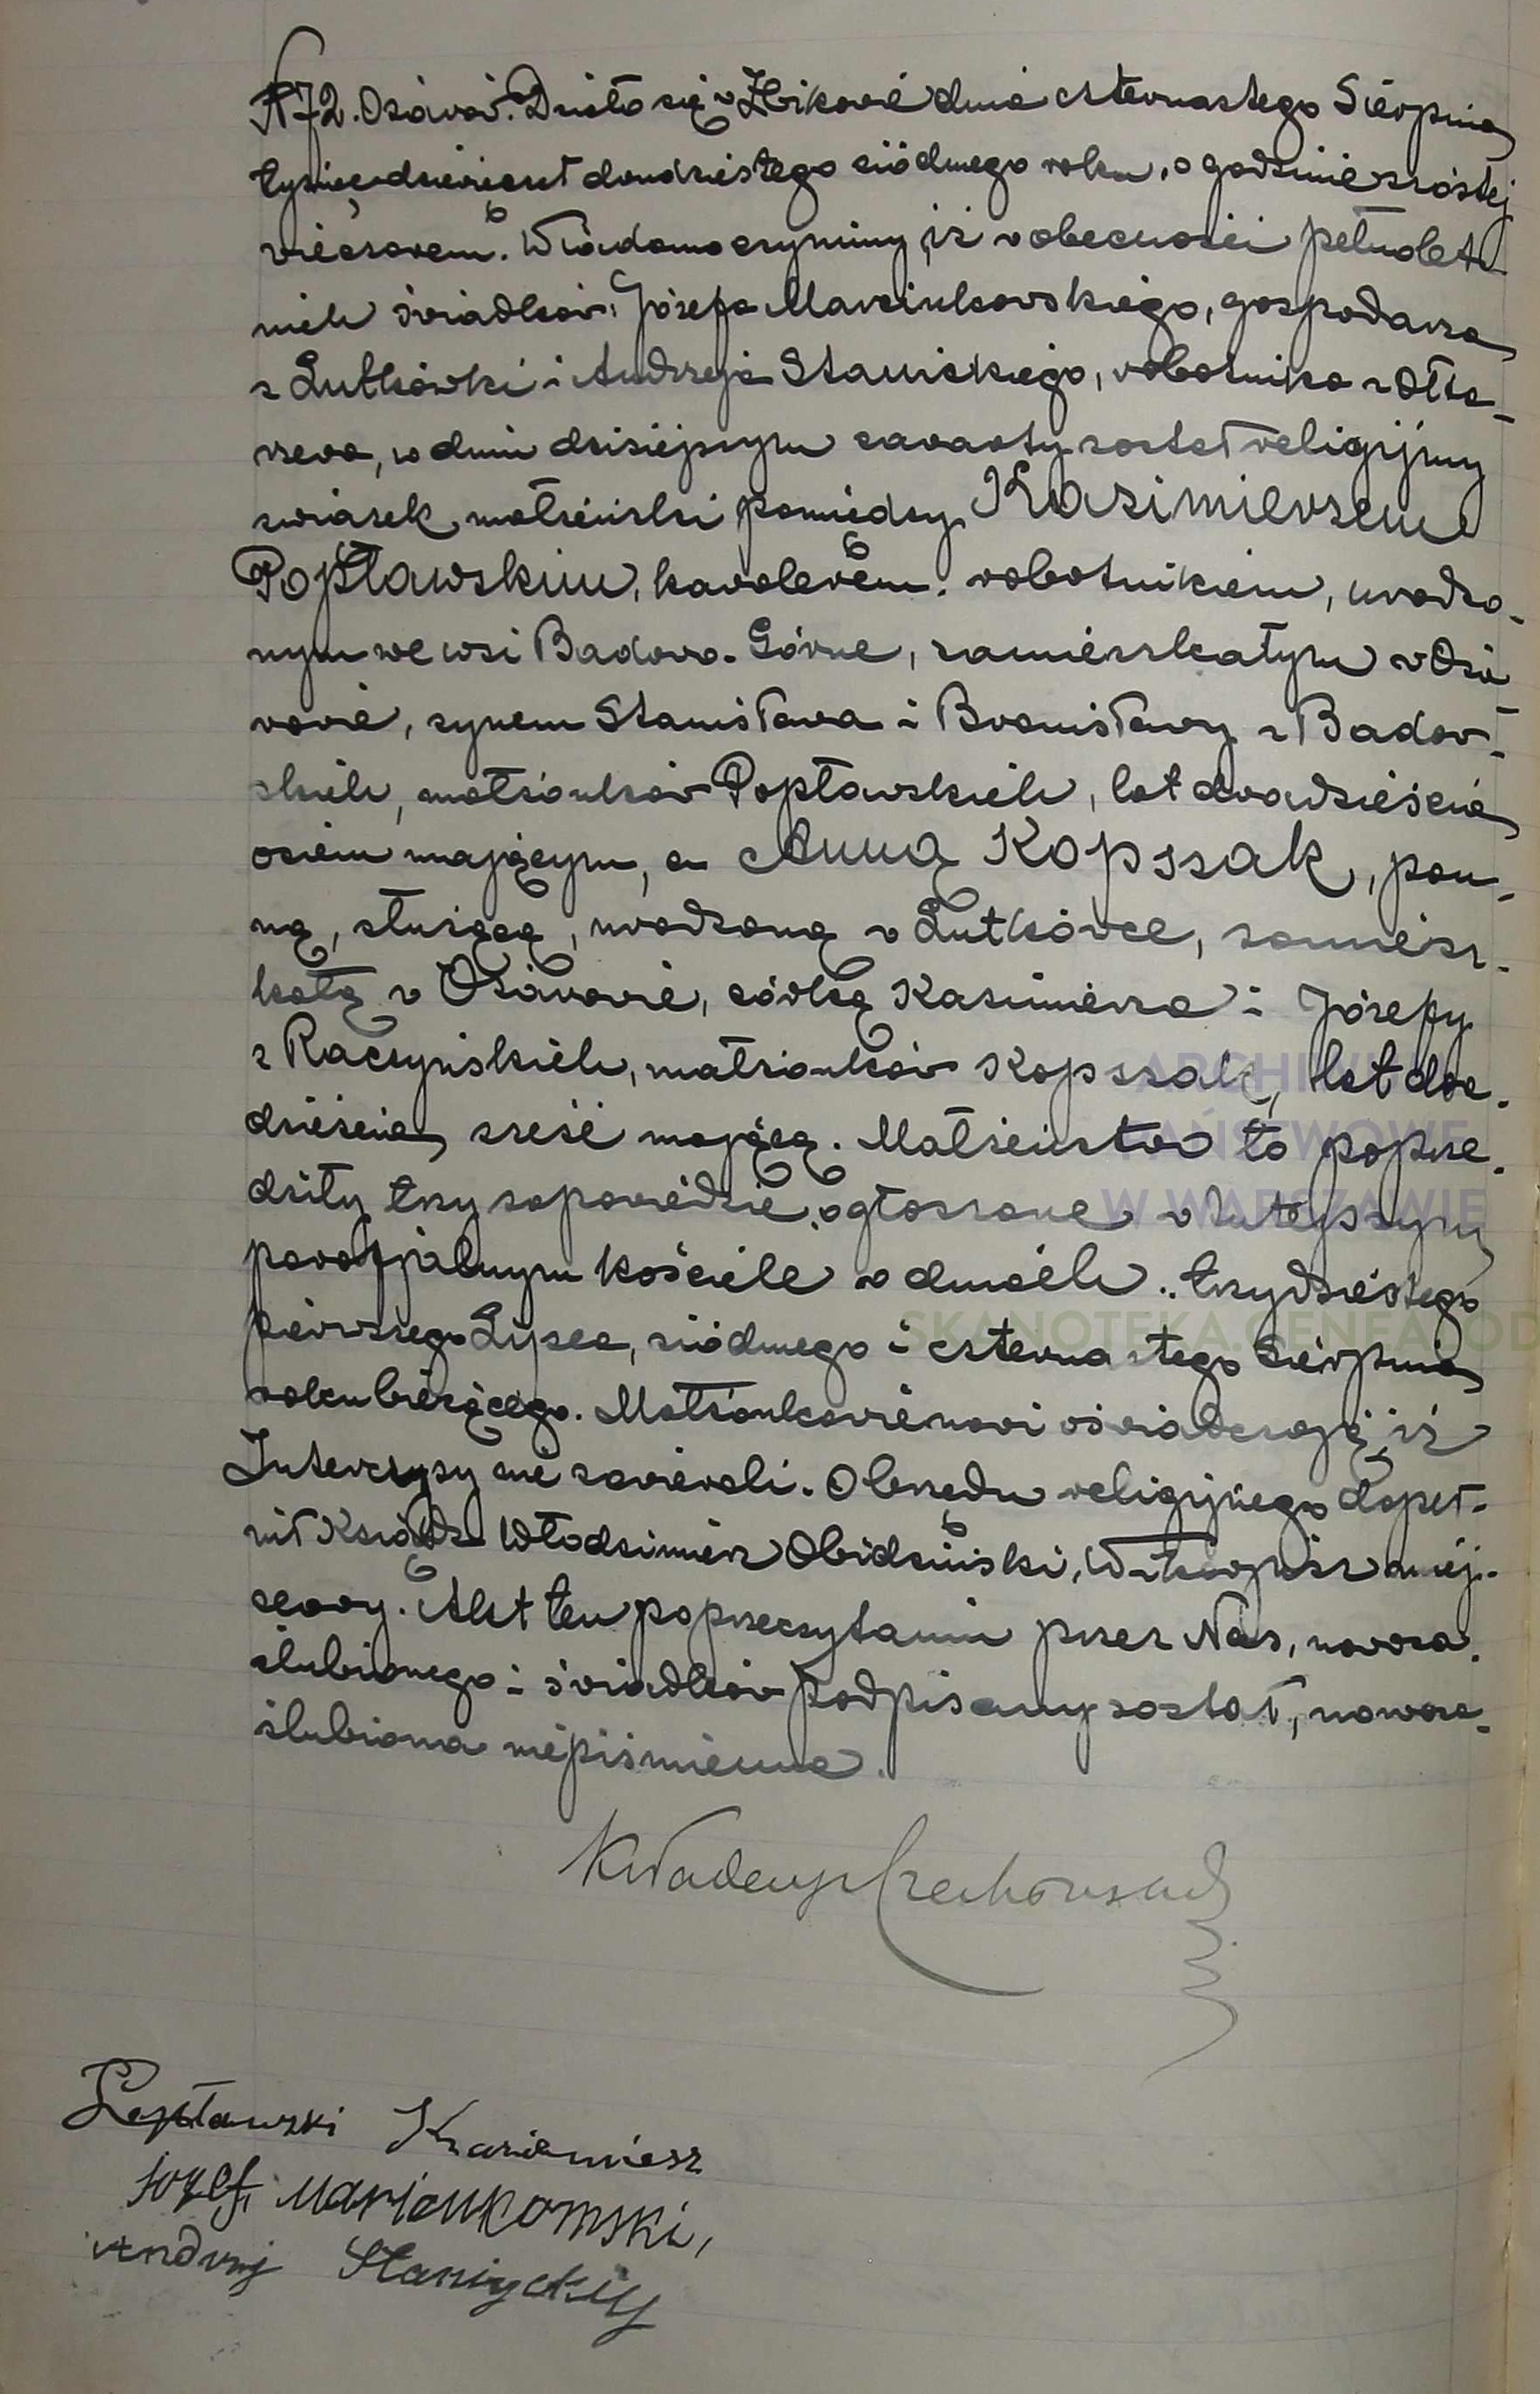 N72. Ożarów. Działo się w Żbikowie dnia czternastego Sierpnia
tysiąc dziewięset dwudziestego siódmego roku, o godzinie szóstej
wieczorem. Wiadomo czynimy, iż w obecności pełnolet-
nich świadków: Józefa Marcinkowskiego, gospodarza
z Lutkówki i Andrzeja Stanickiego, robotnika z Ołta-
rzewa, w dniu dzisiejszym zawarty został religijny
związek małżeński pomiędzy Kazimierzem
Popławskim, kawalerem, robotnikiem, urodzo-
nym we wsi Badowo-Górne, zamieszkałym w Oża-
rowie, synem Stanisława i Bronisławy z Badow-
skich, małżonków Popławskich, lat dwadzieścia
osiem mającym, a Anną Kopssak, pan-
ną, służącą, urodzoną w Lutkówce, zamiesz-
kałą w Ożarowie, córką Kazimierza i Józefy
z Raczyńskich, małżonków Kopssak, lat dwa-
dzieścia sześć mającą. Małżeństwo to poprze-
dziły trzy zapowiedzie, ogłoszone w tutejszym
parafjalnym kościele w dniach: trzydziestego
pierwszego Lipca, siódmego i czternastego Sierpnia
roku bieżącego. Małżonkowie nowi oświadczają, iż
Intercyzy nie zawierali. Obrzędu religijnego dopeł-
nił Ksiądz Włodzimierz Obidziński, Wikarjusz miej-
scowy. Akt ten po przeczytaniu przez Nas, nowoza-
ślubionego i świadków podpisany został, nowoza-
ślubiona niepiśmienna.
Popławski Kazimierz
Józef Marcinkowski,
Andrzej Stanicki
ARCHIWUM
PAŃSTWOWE
W WARSZAWIE
SKANOTEKA.GENEALOD